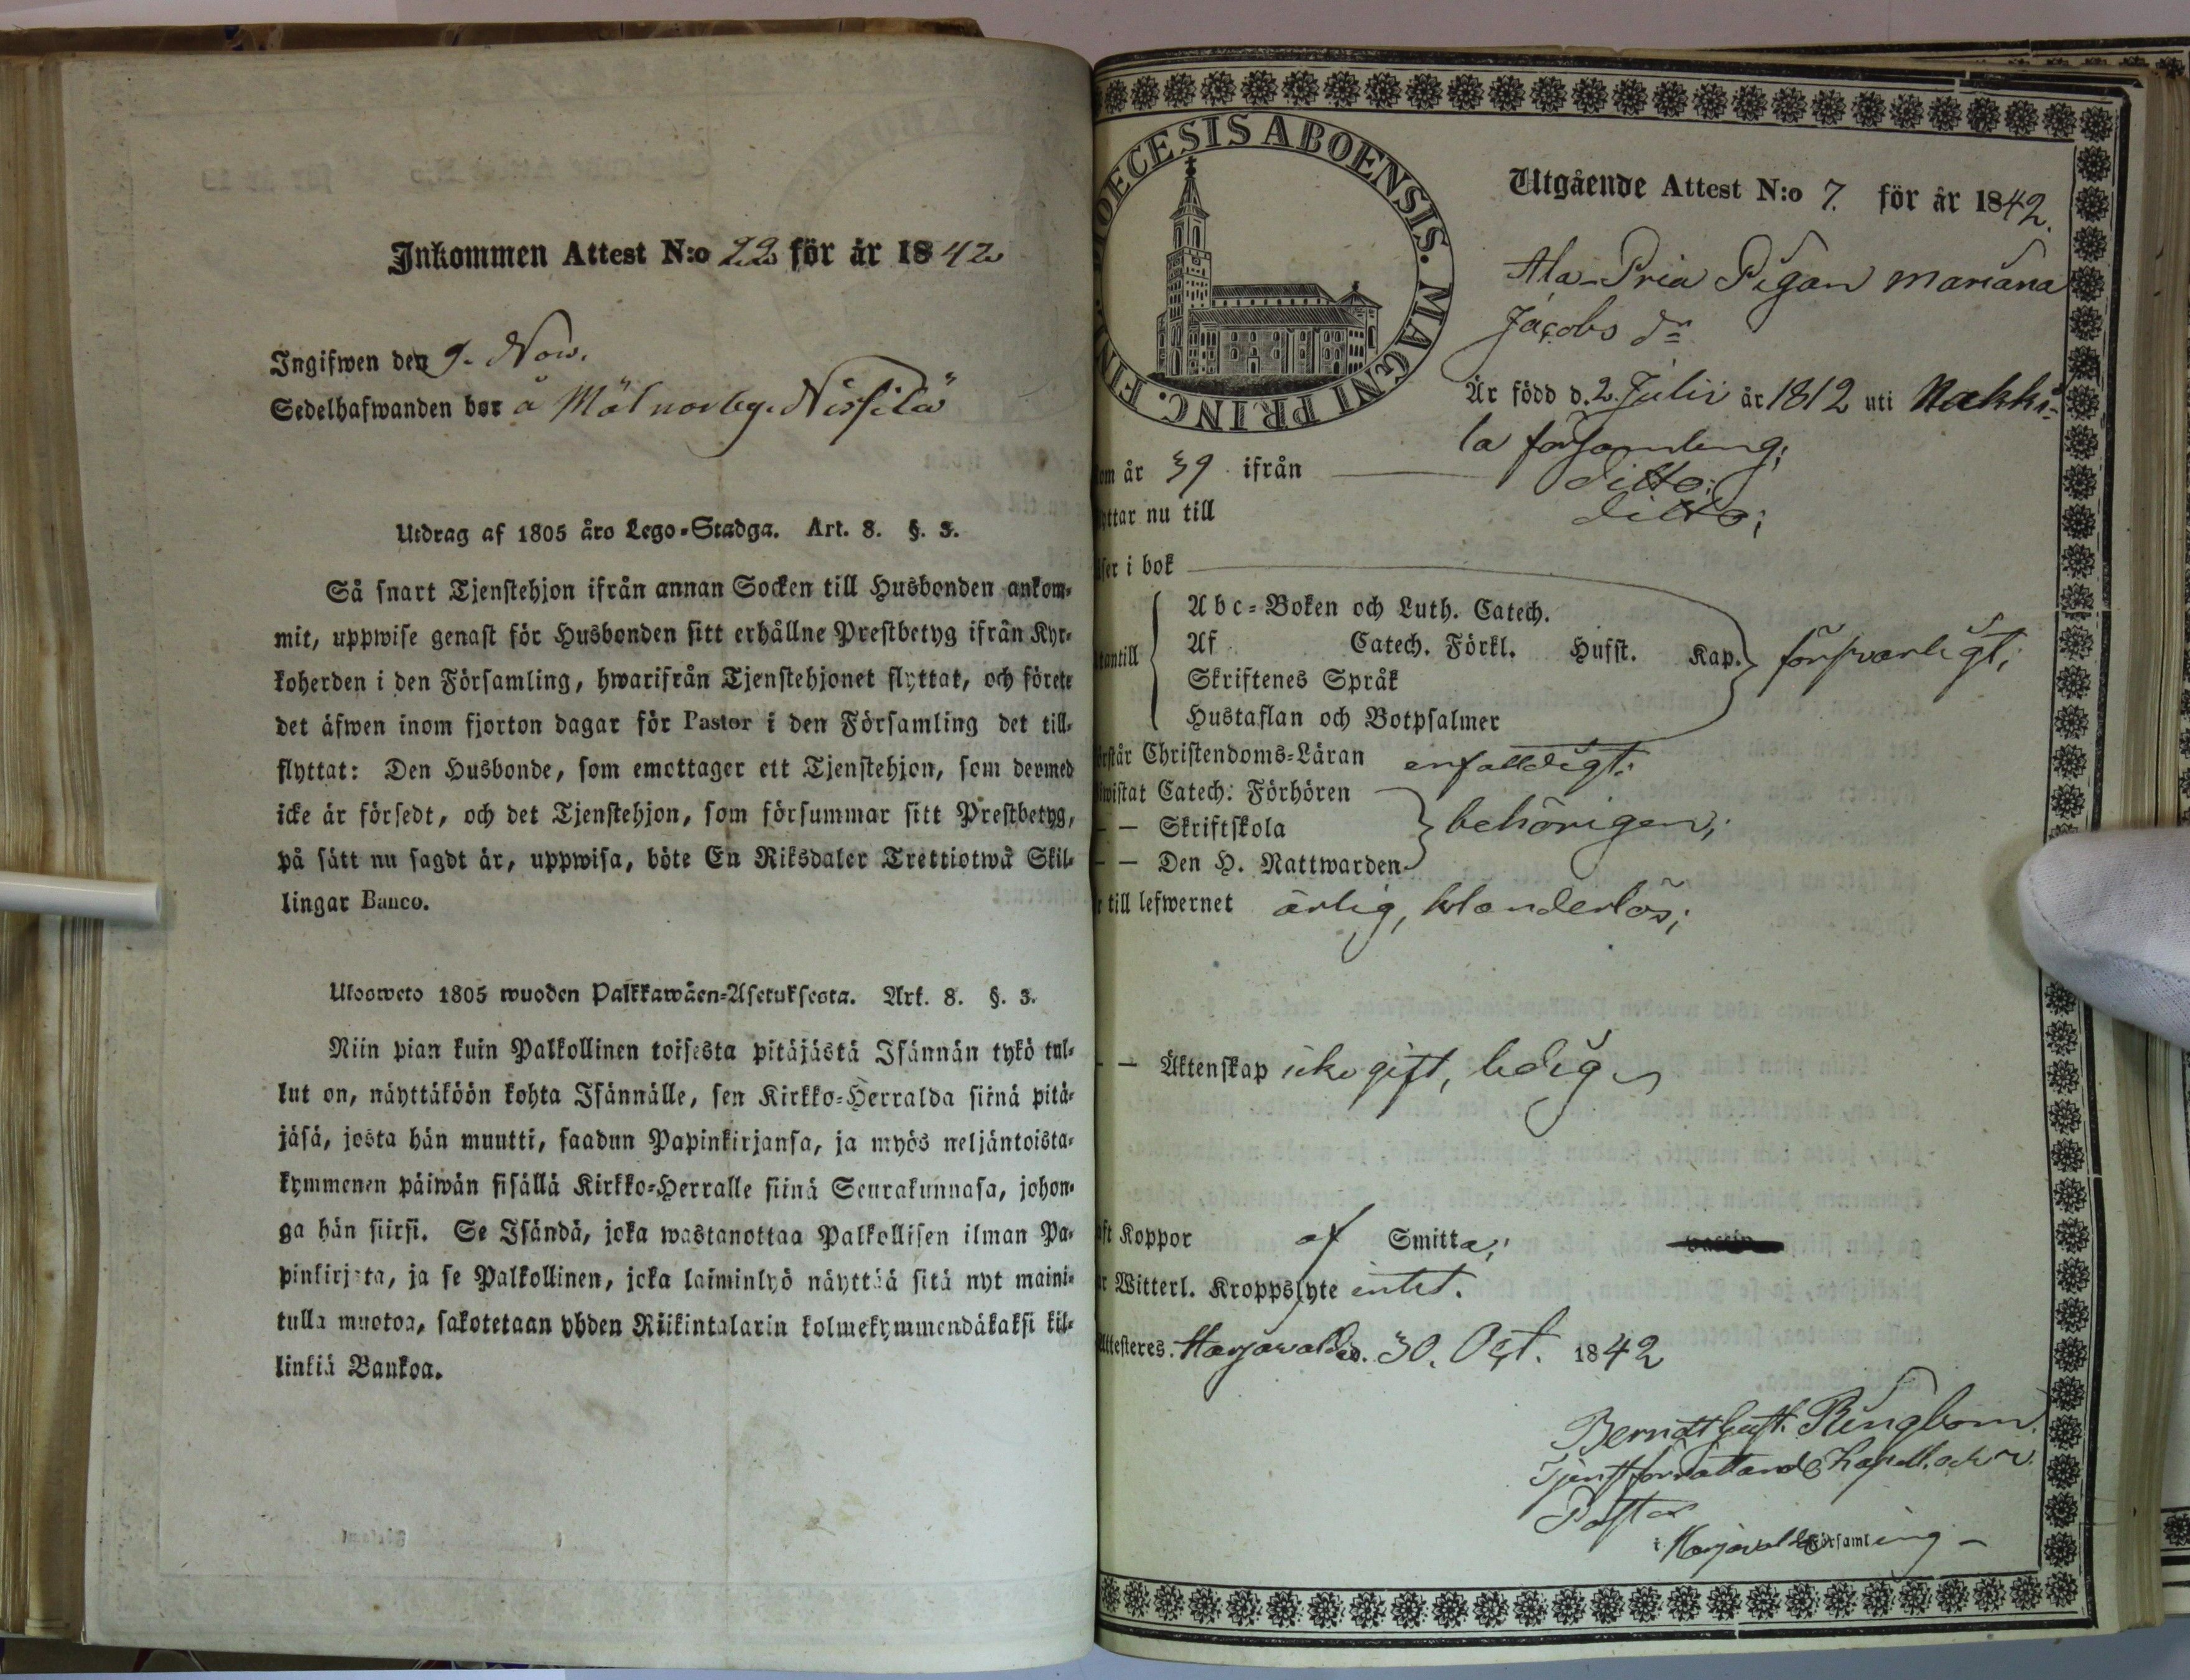 Inkommen Attest N:o 22 för år 1842
Ingifwen den 9. Nov.
Sedelhafwanden bor å Mälnorby Nissilä
Utdrag af 1805 års Lego-Stadga. Art. 8. §. 3.
Så snart Tjenstehjon ifrån annan Socken till Husbonden ankom-
mit, uppwise genast för Husbonden sitt erhållne Prestbetyg ifrån Kyr-
koherden i den Församling, hwarifrån Tjenstehjonet flyttat, och förete
det äfwen inom fjorton dagar för Pastor i den Församling det till-
flyttat: Den Husbonde, som emottager ett Tjenstehjon, som dermed
icke är försedt, och det Tjenstehjon, som försummar sitt Prestbetyg,
på sätt nu sagdt är, uppwisa, böte En Riksdaler Trettiotwå Skil-
lingar Banco.
Uloosweto 1805 wuoden Palkkawäen-Asetuksesta. Art. 8. §. 3.
Niin pian kuin Palkollinen toisesta pitäjästä Isännän tykö tul-
lut on, näyttäköön kohta Isännälle, sen Kirkko-Herralda siinä pitä-
jäsä, josta hän muutti, saadun Papinkirjansa, ja myös neljäntoista-
kymmenen päiwän sisällä Kirkko-Herralle siinä Seurakunnasa, johon-
ga hän siirsi. Se Isändä, joka wastanottaa Palkollisen ilman Pa-
pinkirjata, ja se Palkollinen, joka laiminlyö näyttää sitä nyt maini-
tulla muotoa, sakotetaan yhden Riikintalarin kolmekymmendäkaksi kil-
linkiä Bankoa.
DIOECESIS ABOENSIS. MAGNI PRINC. FIN.
Utgående Attest N:o 7. för år 1842.
Ala-Pria Pigan Mariana
Jacobs dr
Är född d. 2. Julii år 1812 uti Nakki-
la församling;
om år 39 ifrån ditto;
yttar nu till ditto;
ser i bok
Abc-Boken och Luth. Catech.
tantill Af Catech. Förkl. Husst. Kap. försvarligt;
Skriftenes Språk
Hustaflan och Botpsalmer
örstår Christendoms-Läran enfalldigt;
iwistat Catech: Förhören
— — Skriftskola behörigen;
— — Den H. Nattwarden
r till lefwernet ärlig, klanderlös;
— — Äktenskap icke gift, ledig
ft Koppor af Smitta;
r Witterl. Kroppslyte intet.
Attesteres. Harjavalda. 30. Oct. 1842
Berndt Gust. Ringbom.
Tjenstförrättande Kapell. och v.
Pastor
i Harjavalda Församling